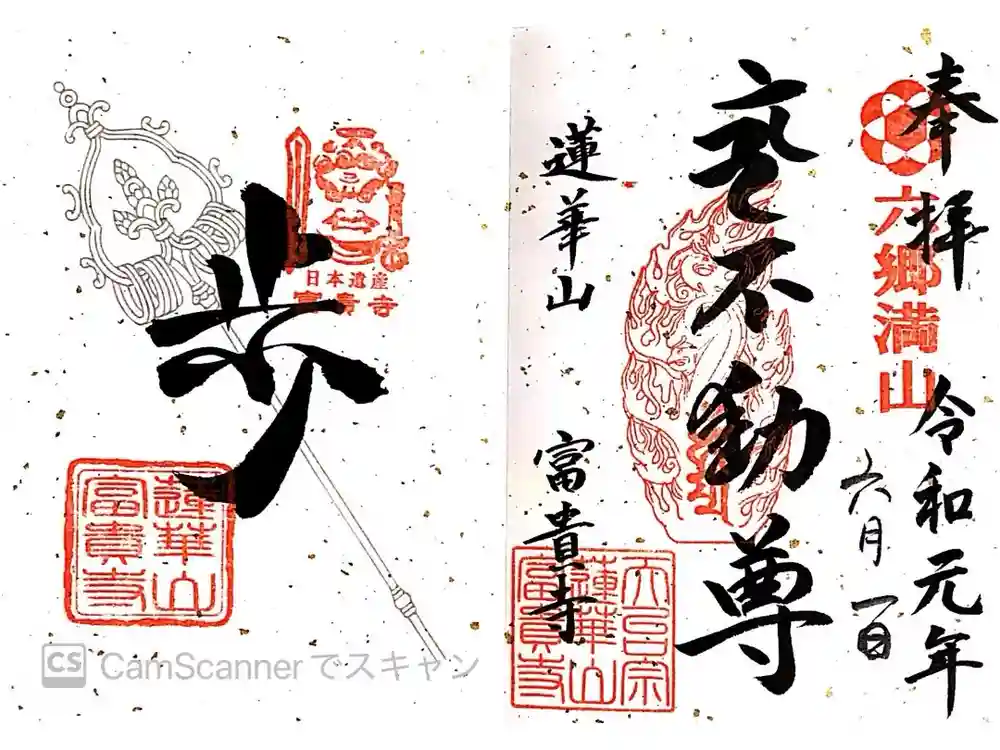 奉拝
六郷満山
令和元年
六月一日
不動尊
蓮華山
富貴寺
天台宗
蓮華山
富貴寺
日本遺産
富貴寺
歩
蓮華山
富貴寺
CS CamScannerでスキャン